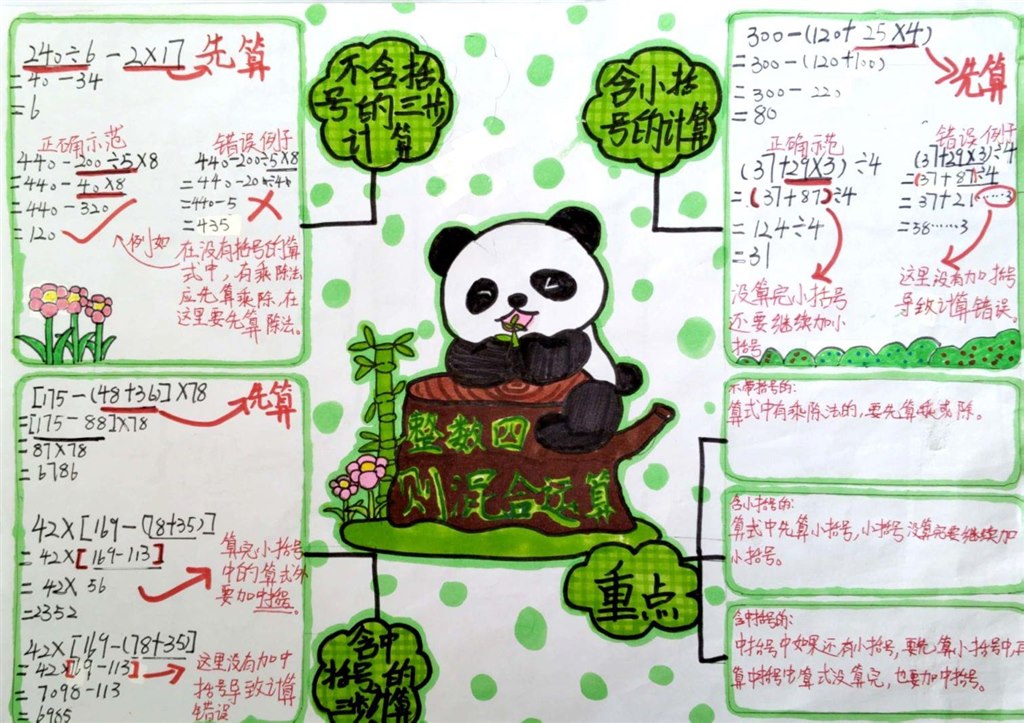 240÷6-2×17 先算
=40-34
=6
正确示范
440-200÷5×8
=440-40×8
=440-320
=120
错误例子
440-200÷5×8
=440-200÷40
=440-5
=435
例如
在没有括号的算
式中，有乘除法，
应先算乘除，在
这里要先算除法。
不含括
号的三步
计算
含小括
号的计算
300-(120+25×4)
=300-(120+100)
=300-220
=80
先算
正确示范
(37+29×3)÷4
=(37+87)÷4
=124÷4
=31
没算完小括号
还要继续加小
括号
错误例子
(37+29×3)÷4
=(37+87÷4
=37+21……3
=38……3
这里没有加括号
导致计算错误。
整数四
则混合运算
[175-(48+36)]×78 先算
=[175-88]×78
=87×78
=6786
42×[169-(78+35)]
=42×[169-113]
=42×56
=2352
算完小括号
中的算式外
要加中括号。
42×[169-(78+35)]
=42×[169-113]
=7098-113
=6985
这里没有加中
括号导致计算
错误
含中
括号的
三步计算
重点
不带括号的：
算式中有乘除法的，要先算乘或除。
含小括号的：
算式中先算小括号，小括号没算完要继续加
小括号。
含中括号的：
中括号中如果还有小括号，要先算小括号中再
算中括号中算式没算完，也要加中括号。